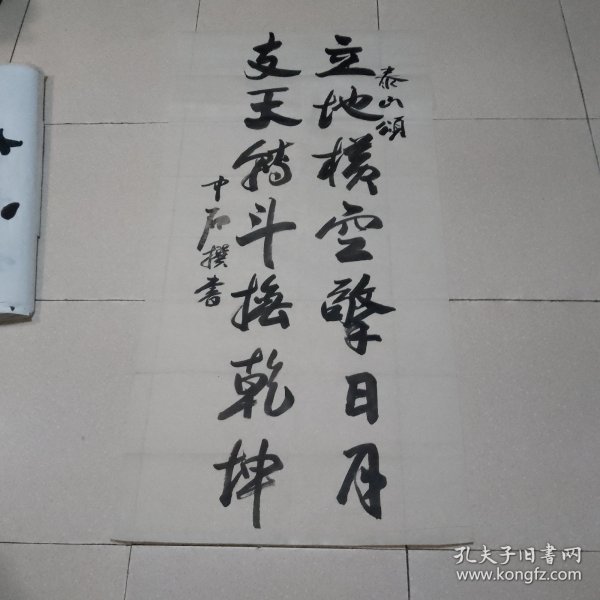 泰山頌
立地横空擎日月
支天轉斗撫乾坤
中石撰書
孔夫子旧書网
www.kongfz.com